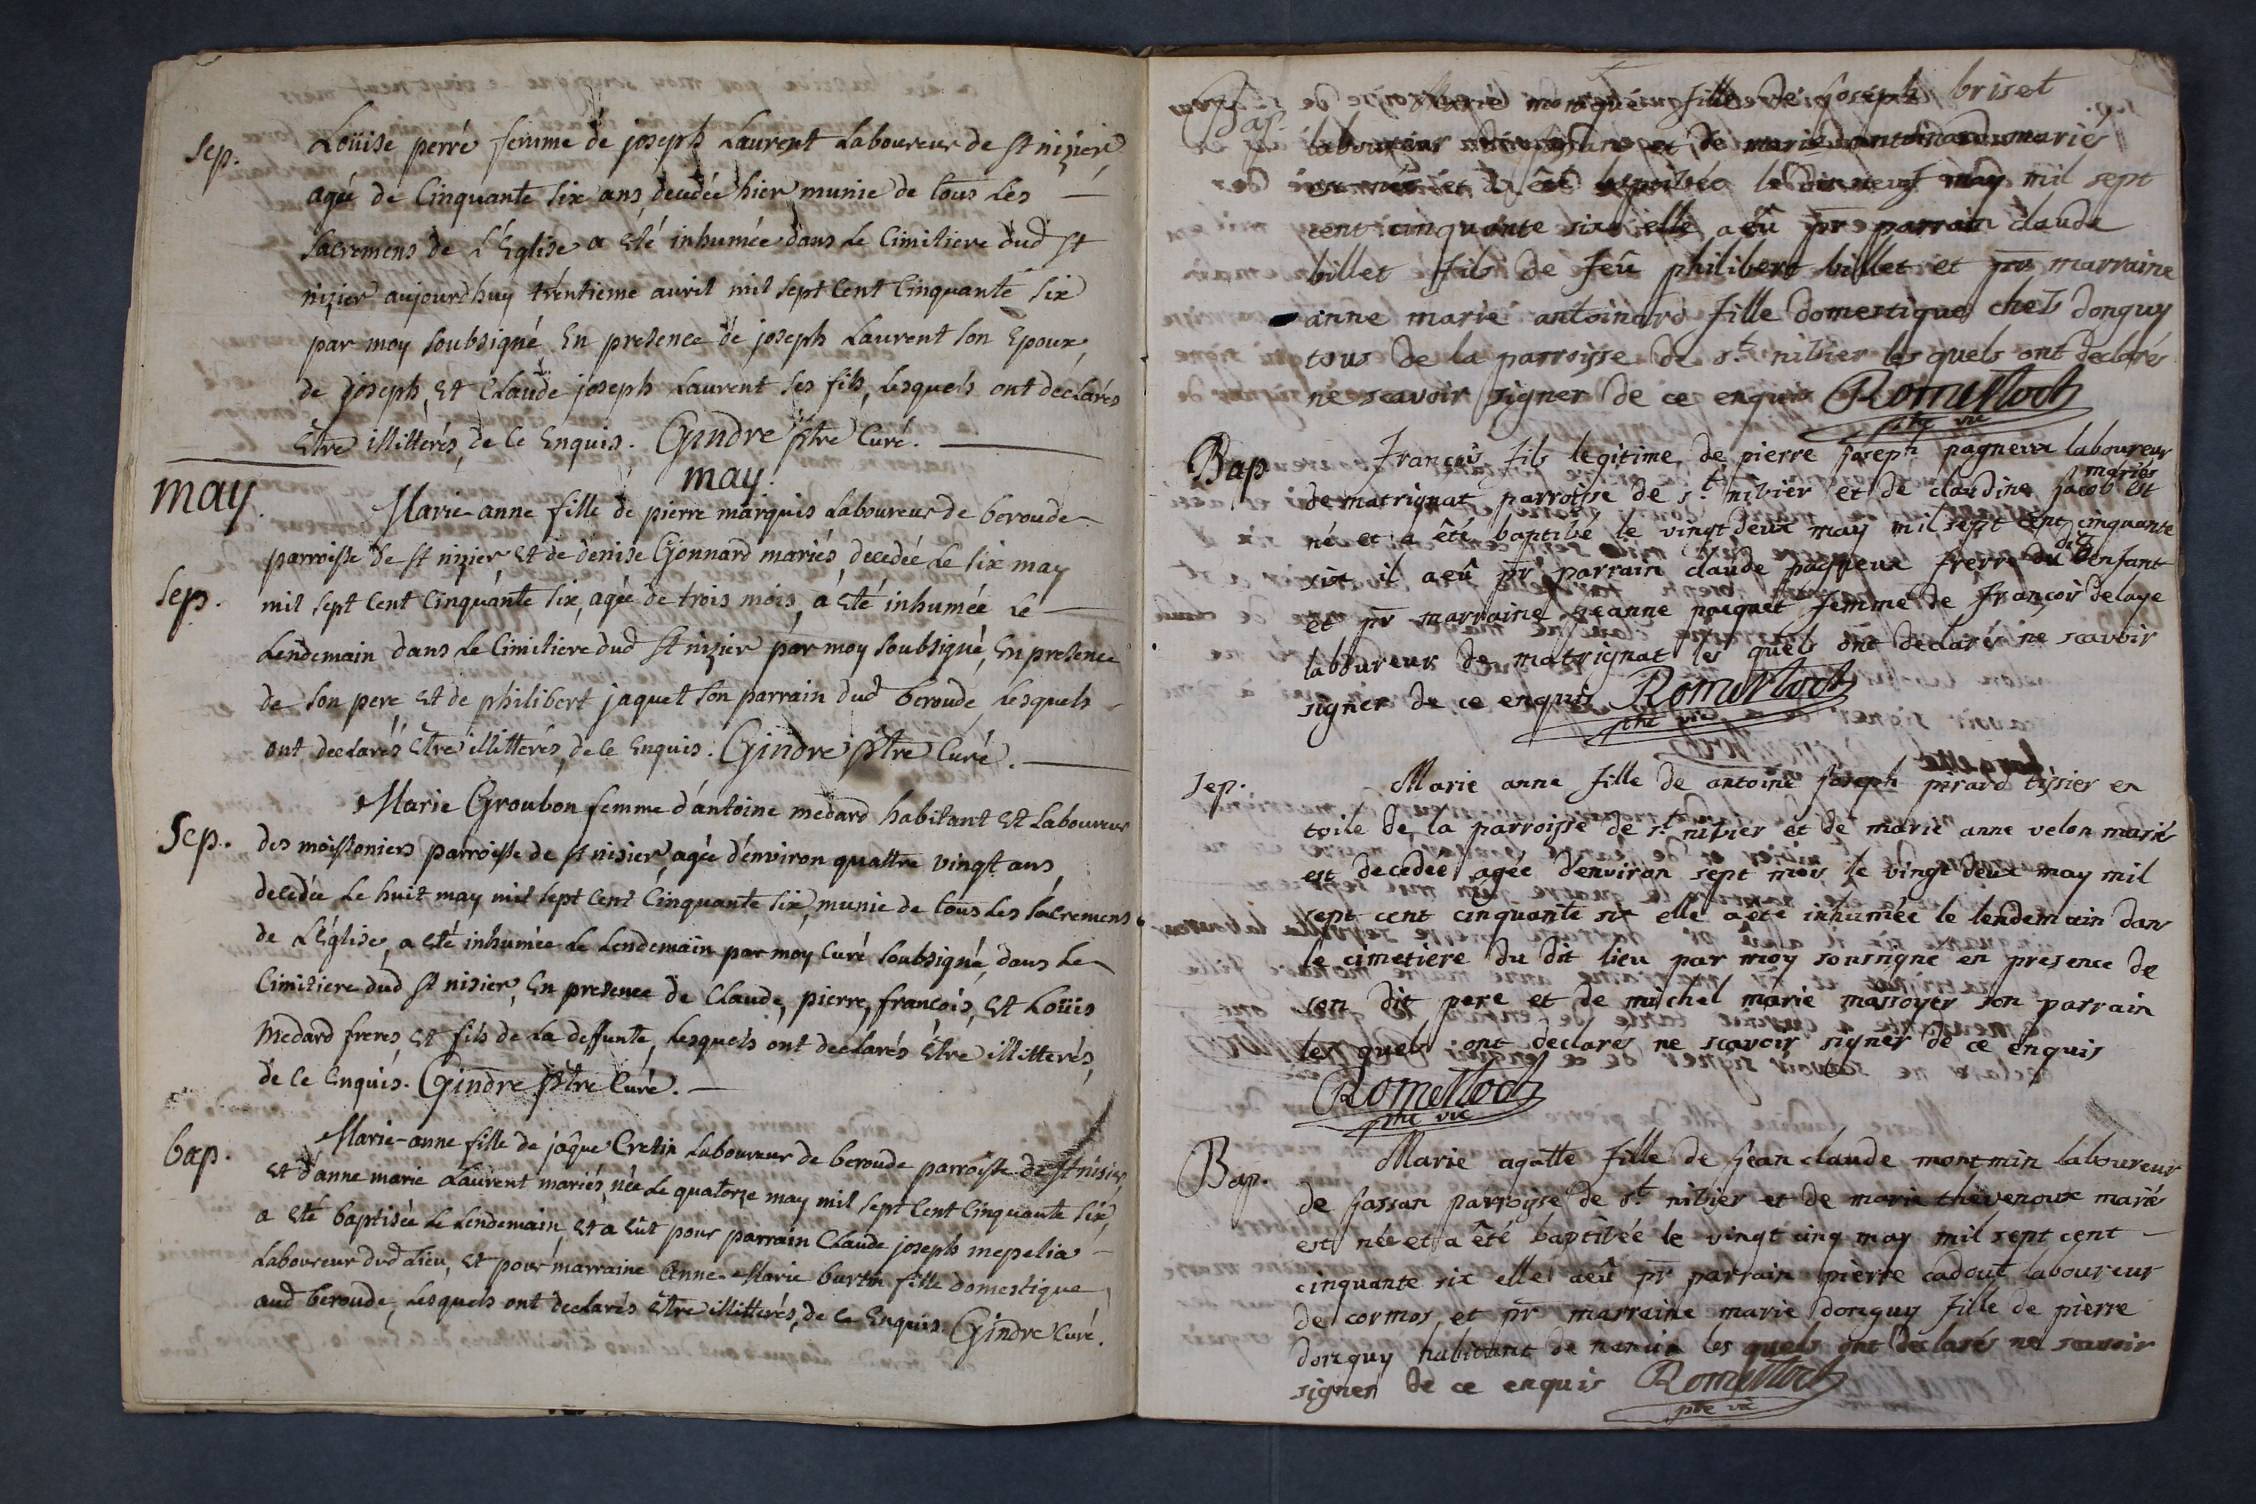 sep.
Loüise perré femme de joseph Laurent Laboureur de st nizier
agée de Cinquante Six ans, decedée hier munie de tous Les
Sacremens de L'Eglise a Eté inhumée dans Le Cimitiere dud st
nizier aujourdhuy trentieme avril mil Sept Cent Cinquante Six
par moy Soubsigné En presence de joseph Laurent Son Epoux,
de joseph, et Claude joseph Laurent Ses fils, Lesquels ont declarés
Etre illitterés, de Ce Enquis. Gindre ptre Curé.
may.
may.
Marie-anne fille de pierre marquis Laboureur de beroude
parroisse de st nizier et de denise Gonnard mariés, decedée Le Six may
sep.
mil Sept Cent Cinquante Six, agée de trois mois, a Eté inhumée Le
Lendemain dans Le Cimitiere dud st nizier par moy Soubsigné, En presence
de Son pere et de philibert jaquet Son parrain dud beroude, Lesquels
ont declarés Etre illitterés, de Ce Enquis. Gindre ptre Curé.
Sep.
Marie Groubon femme d'antoine medard habitant et Laboureur
des moissoniers parroisse de st nisier agée d'environ quattre vingt ans,
decedée Le huit may mil Sept Cent Cinquante Six, munie de tous Les Sacremens
de L'église, a Eté inhumée Le Lendemain par moy Curé Soubsigné, dans Le
Cimitiere dud st nisier, En presence de Claude, pierre, francois, et Loüis
medard freres, et fils de La deffunte, Lesquels ont declarés Etre illitterés,
de Ce Enquis. Gindre ptre Curé.
bap.
Marie-anne fille de jaque Cretin Laboureur de beroude parroisse de st nisier
et d'anne marie Laurent mariés, née Le quatorze may mil Sept Cent Cinquante Six,
a Eté baptisée Le Lendemain, et a Eût pour parrain Claude joseph mepelia
Laboureur dud Lieu, et pour marraine Anne-Marie burtin fille domestique
aud beroude, Lesquels ont declarés Etre illitterés, de Ce Enquis. Gindre Curé.
Bap.
Marie fille de joseph briset
laboureur et de marie antoinard mariés
est née et a été baptisée le dix neuf may mil sept
cent cinquante six elle a eû pr parrain claude
billet fils de feû philibert billet et pr marraine
anne marie antoinard fille domestique chez donguy
tous de la parroisse de st nibier les quels ont declarés
ne scavoir signer de ce enquis
ptre vic
Bap
francois fils legitime de pierre joseph pagneux laboureur
de matrignat parroisse de st nibier et de claudine jacob mariés est
né et a êté baptibé le vingt deux may mil sept cent cinquante
six il a eû pr parrain claude pagneux frerre du dit enfant
et pr marraine jeanne pacquet femme de francois delaye
laboureur de matrignat les quels ont declarés ne scavoir
signer de ce enquis
ptre vic
sep.
Marie anne fille de antoine joseph pirard tissier en
toile de la parroisse de st nibier et de marie anne velon mariés
est decedée agée d'environ sept mois le vingt deux may mil
sept cent cinquante six elle a eté inhumée le lendemain dans
le cimetiere du dit lieu par moy sousigné en presence de
son dit pere et de michel marie massoyer son parrain
les quels ont declarés ne scavoir signer de ce enquis
ptre vic
Bap.
Marie agatte fille de jean claude montmin laboureur
de jassan parroisse de st nibier et de marie thevenoux mariés
est née et a êté baptibée le vingt cinq may mil sept cent
cinquante six elle a eû pr parrain pierre cadout laboureur
de cormos, et pr marraine marie donguy fille de pierre
donguy habitant de les quels ont declarés ne scavoir
signer de ce enquis
ptre vic